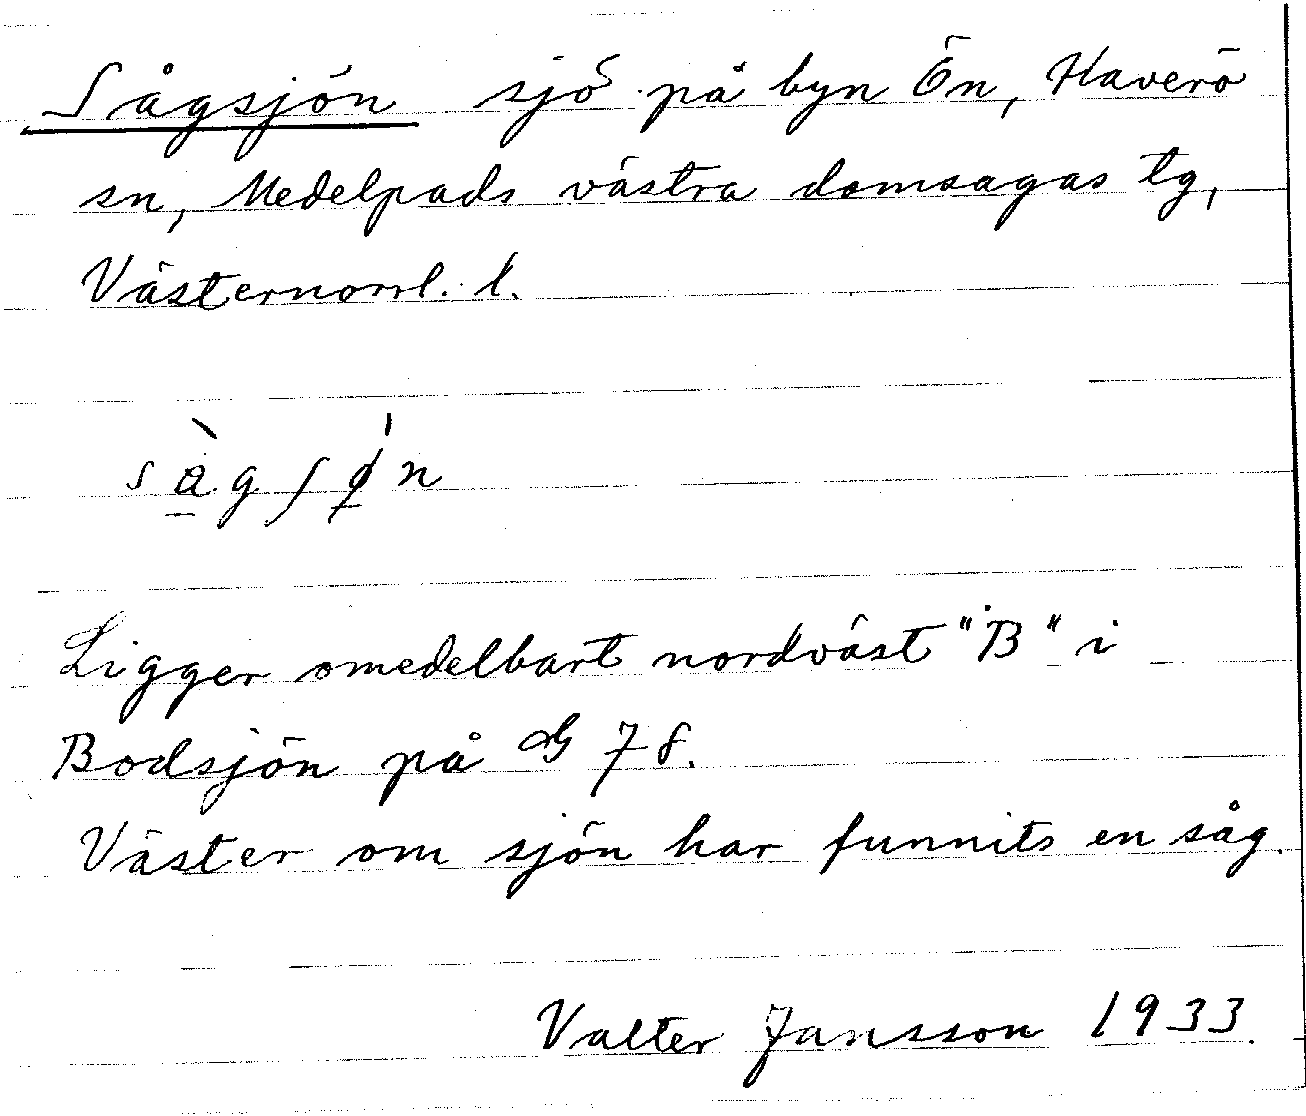 Sågsjön sjö på byn Ön, Haverö
sn, Medelpads västra domsagas tg,
Västernorrl. l.
Ligger omedelbart nordväst "B" i
Bodsjön på G 78.
Väster om sjön har funnits en såg.
Valter Jansson 1933.